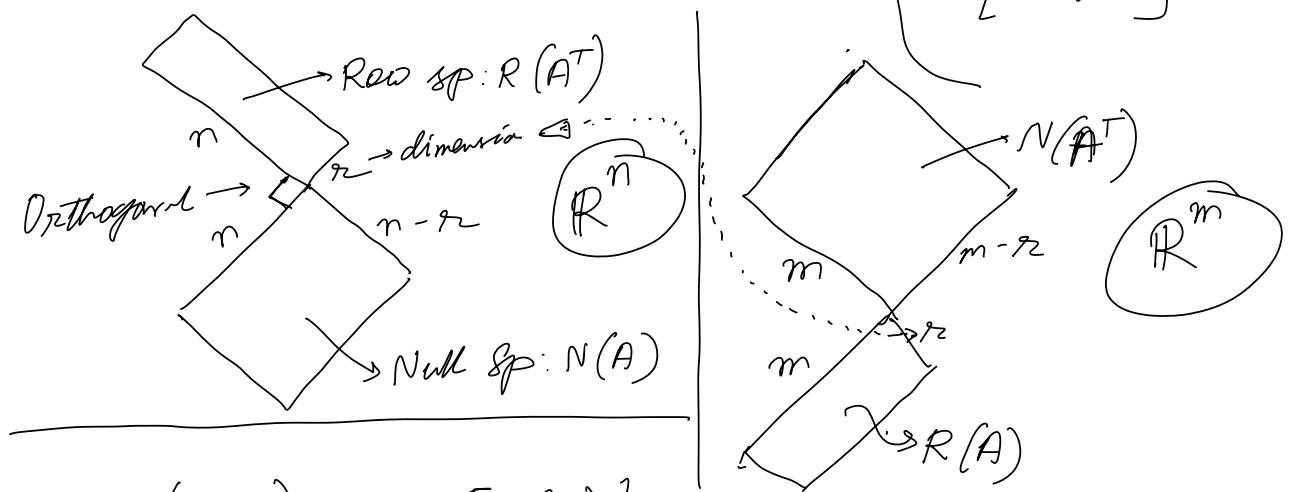 Row sp: R(A^T)
n
r → dimension
Orthogonal →
n
n - r
ℝ^n
Null Sp: N(A)
N(A^T)
m
m - r
ℝ^m
r
m
R(A)